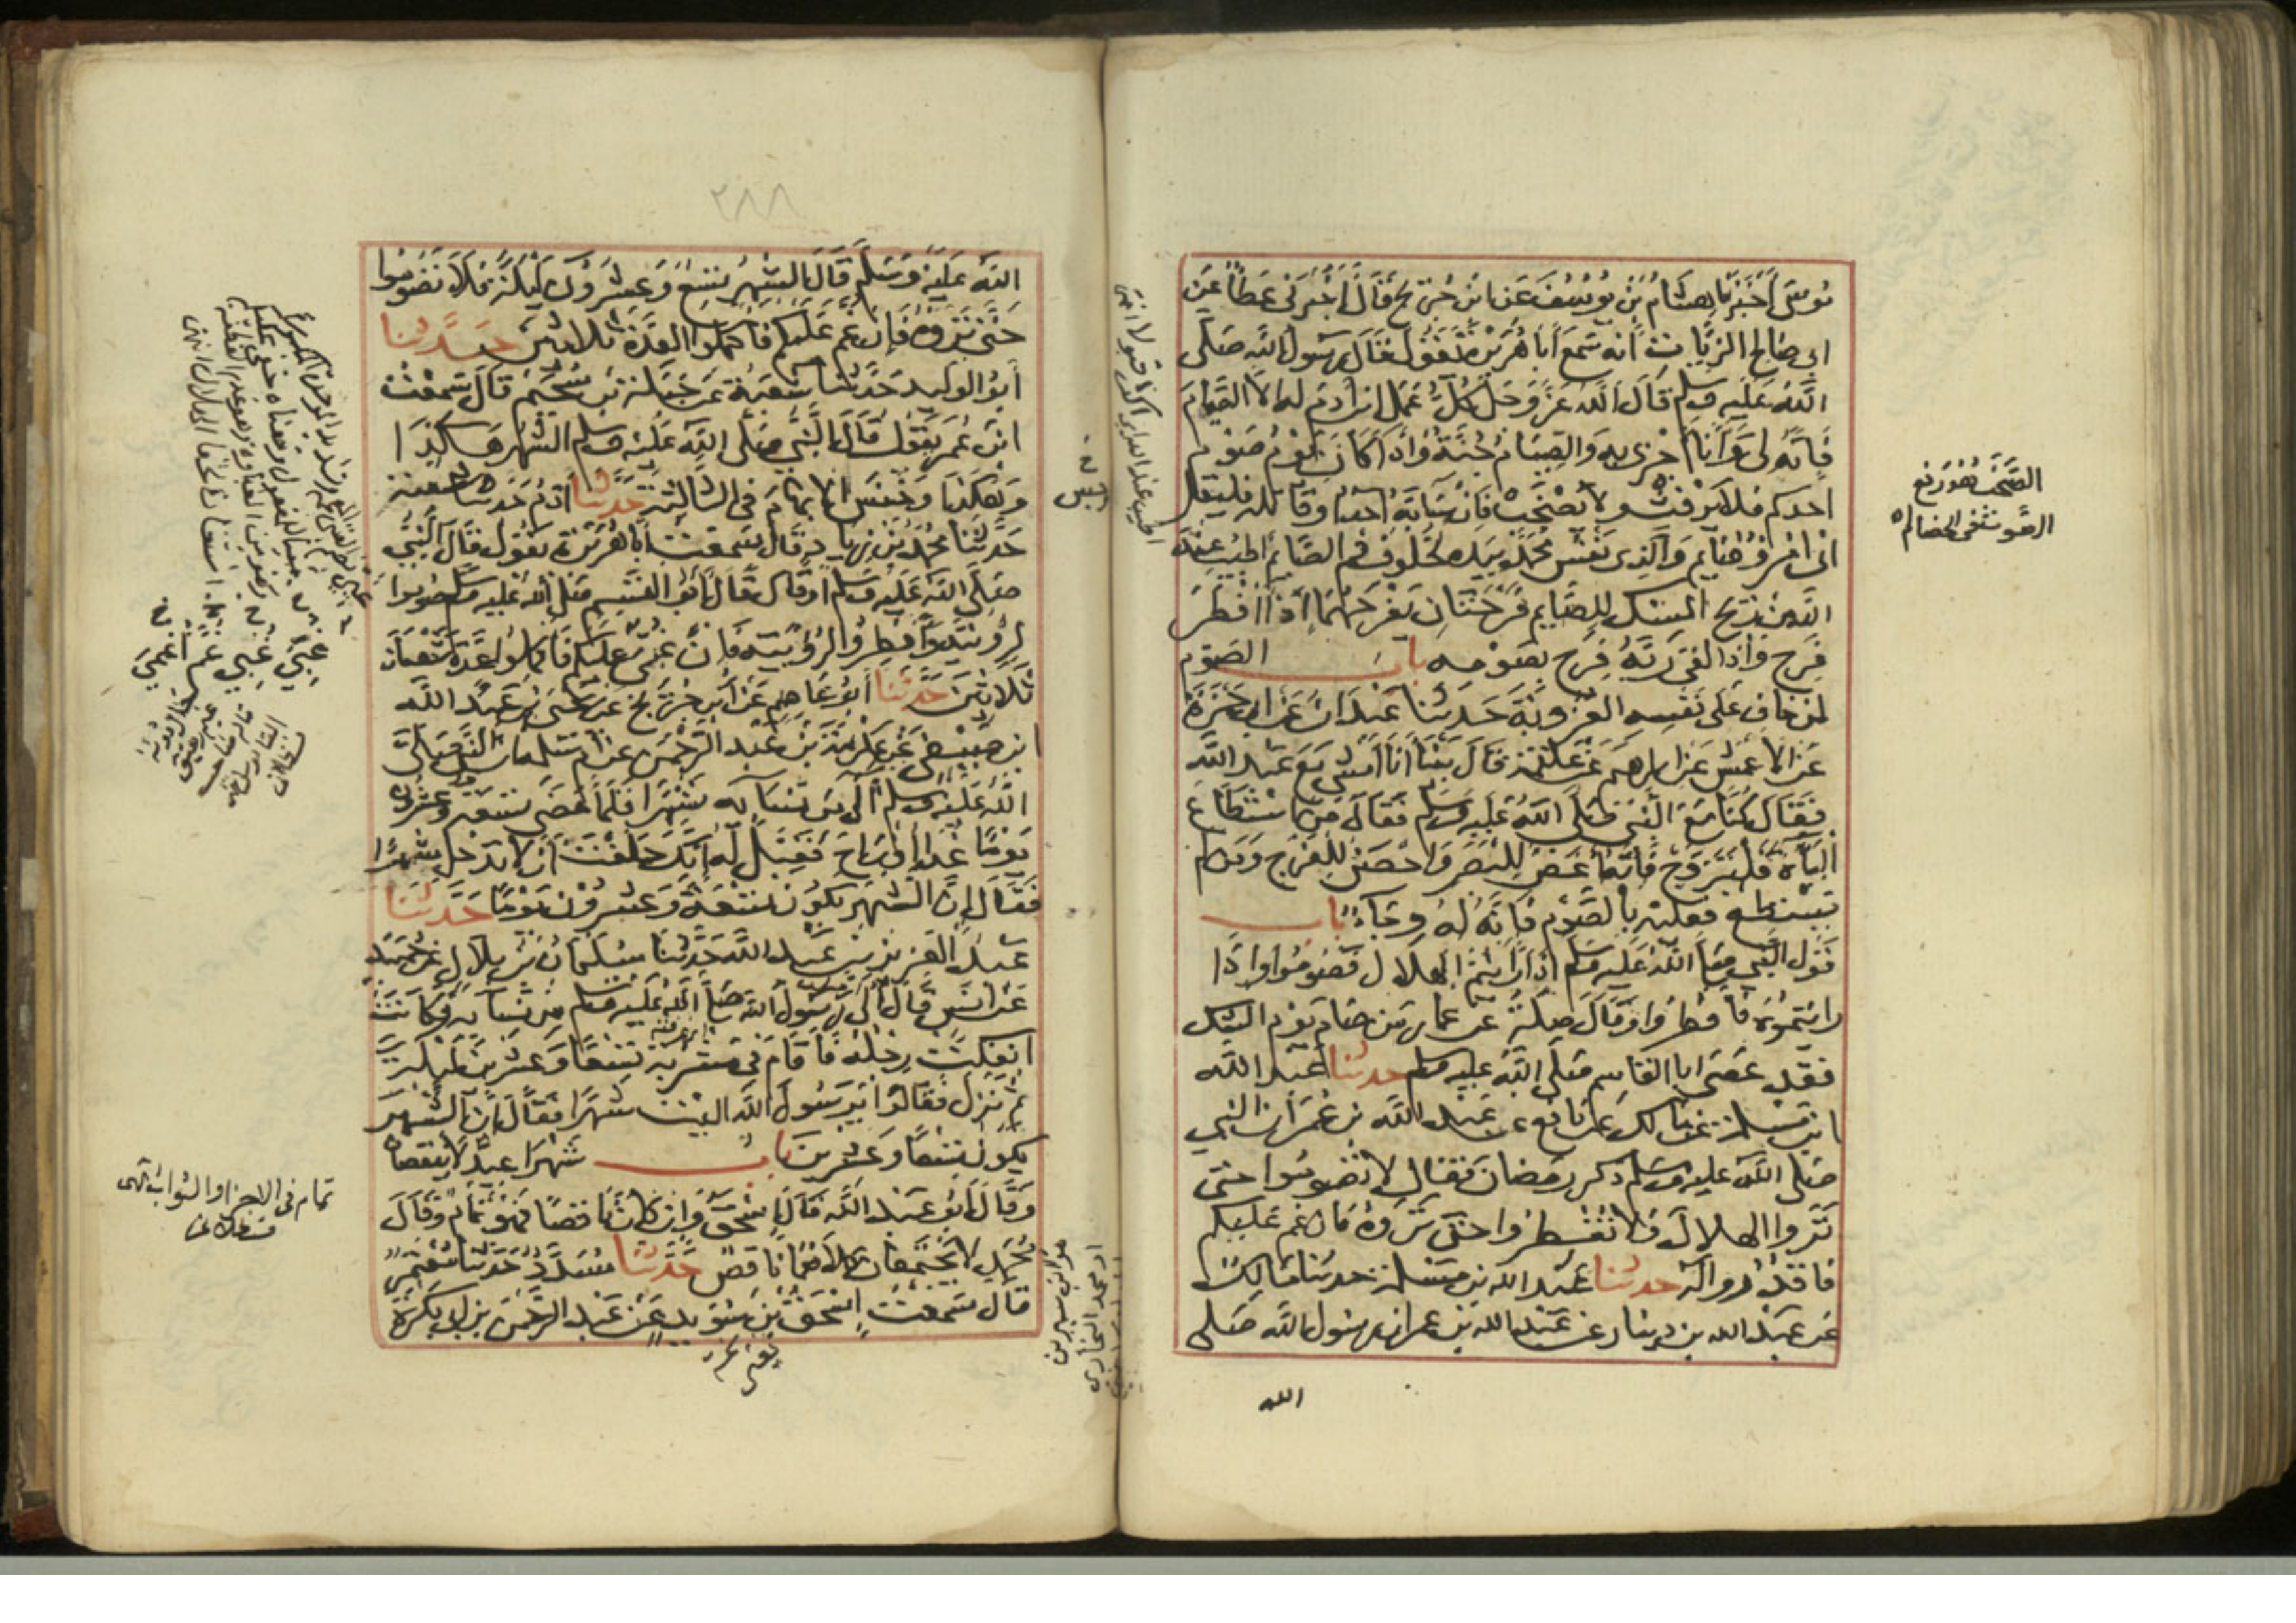 موسى أخبرنا هشام بن يوسف عن ابن جريج قال أخبرني عطا عن
ابي صالح الزيات أنه سمع أبا هريرة يقول قال رسول الله صلى
الله عليه وسلم قال الله عز وجل كل عمل ابن ادم له الا الصيام
فإنه لي وأنا أجزي به والصيام جنة وإذا كان يوم صوم
احدكم فلا يرفث ولا يصخب فان سابه أحد أو قاتله فليقل
اني امرؤ صايم والذي نفس محمد بيده لخلوف فم الصايم أطيب عند
الله من ريح المسك للصايم فرحتان يفرحهما إذا أفطر
فرح وإذا لقي ربه فرح بصومه باب الصوم
لمن خاف على نفسه العزوبة حدثنا عبدان عن ابي حمزة
عن الاعمش عن ابرهيم عن علقمة قال بينا أنا أمشي مع عبد الله
فقال كنا مع النبي صلى الله عليه وسلم فقال من استطاع
الباءة فليتزوج فانه أغض للبصر وأحصن للفرج ومن لم
يستطع فعليه بالصوم فإنه له وجاء باب
قول النبي صلى الله عليه وسلم إذا رأيتم الهلال فصوموا وإذا
رايتموه فأفطروا وقال صلة عن عمار من صام يوم الشك
فقد عصى ابا القاسم صلى الله عليه وسلم حدثنا عبد الله
ابن مسلمة عن مالك عن نافع عن عبد الله بن عمر أن النبي
صلى الله عليه وسلم ذكر رمضان فقال لا تصوموا حتى
تروا الهلال ولا تفطروا حتى تروه فان غم عليكم
فاقدروا له حدثنا عبد الله بن مسلمة حدثنا مالك
عن عبد الله بن دينار عن عبد الله بن عمر ان رسول الله صلى
الله
الصخب هو رفع
الصوت في الخصام
٢٨٨
الله عليه وسلم قال الشهر تسع وعشرون ليلة فلا تصوموا
حتى تروه فإن غم عليكم فأكملوا العدة ثلاثين حدثنا
أبو الوليد حدثنا شعبة عن جبلة بن سحيم قال سمعت
ابن عمر يقول قال النبي صلى الله عليه وسلم الشهر هكذا
وهكذا وخنس الابهام في الثالثة حدثنا آدم حدثنا شعبة
حدثنا محمد بن زياد قال سمعت أبا هريرة يقول قال النبي
صلى الله عليه وسلم أو قال قال أبو القسم صلى الله عليه وسلم صوموا
لرؤيته وأفطروا لرؤيته فإن غبي عليكم فأكملوا عدة شعبان
ثلاثين حدثنا أبو عاصم عن ابن جريج عن يحيى بن عبد الله
ابن صيفي عن عكرمة بن عبد الرحمن عن أم سلمة ان النبي صلى
الله عليه وسلم آلى من نسايه شهرا فلما مضى تسعة وعشرون
يوما غدا أو راح فقيل له إنك حلفت أن لا تدخل شهرا
فقال إن الشهر يكون تسعة وعشرون يوما حدثنا
عبد العزيز بن عبد الله حدثنا سليمان بن بلال عن حميد
عن انس قال آلى رسول الله صلى الله عليه وسلم من نسايه وكانت
انفكت رجله فأقام في مشربة تسعا وعشرين ليلة
ثم نزل فقالوا يرسول الله اليت شهرا فقال إن الشهر
يكون تسعا وعشرين باب شهرا عيد لا ينقصان
وقال أبو عبد الله قال إسحق وإن كان ناقصا فهو تمام وقال
محمد لا يجتمعان كلاهما ناقص حدثنا مسدد حدثنا معتمر
قال سمعت إسحق بن سويد عن عبد الرحمن بن ابي بكرة
خ
حبس
غبي غبي غم أغمي
تمام في الاجر والثواب انتهى
قسطلاني
هو ابن سيرين
او محمد البخاري